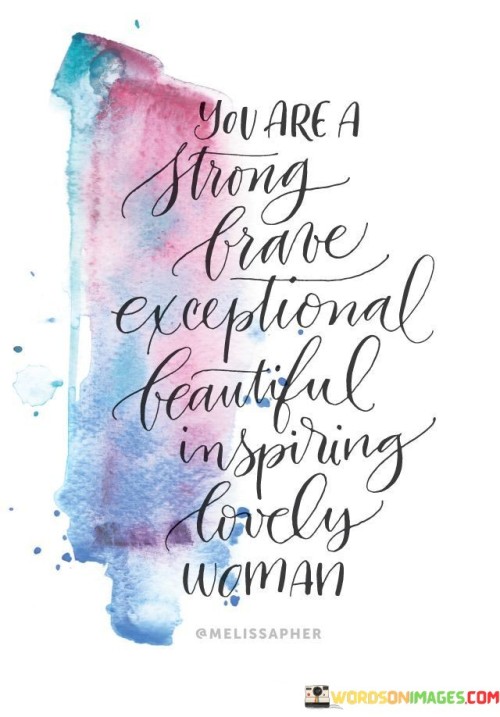 YOU ARE A
strong
brave
exceptional
beautiful
inspiring
lovely
WOMAN
@MELISSAPHER
WORDSONIMAGES.COM